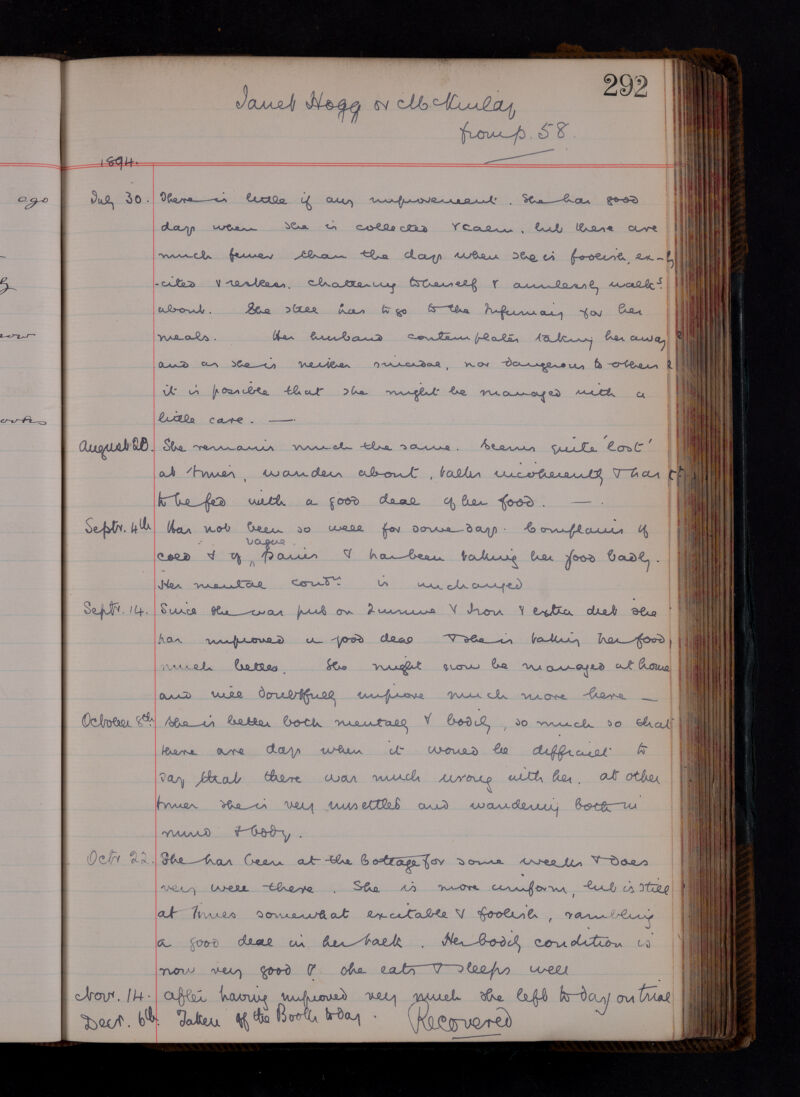 292
Janet Hogg or McKinlay
from p. 58.
1894.
ago
July 30. There is little if any improvement. She has good
days when she is collected & calm, but there are
much fewer than the days when she is foolish, ex-
-cited & restless, chattering to herself & aimlessly walkg
about. She still has to go to the Infirmary for her
meals. Her husband contemplates taking her away
and as she is neither suicidal, nor dangerous to others
it is possible that she might be managed with a
little care. —
August 20. She remains much the same. Seems quite 'lost'
at times, wanders about, talks incoherently & has
to be fed with a good deal of her food. —
Septr. 4th Has not been so well for some days. Complains of
cold & of vague pains & has been taking her food badly.
Her mental condn. is unchanged
Septr. 14. Since she was put on Quinine & Iron & extra diet she
has improved a good deal & she is taking her food
much better. She might now be managed at home
and will doubtfully improve much more here —
October 8th. She is better both mentally & bodily, so much so that
there are days when it would be difficult to
say that there was much wrong with her. at other
times she is very unsettled and wandering both in
mind & body.
Octr 22. She has been at the Cottage for some weeks & does
very well there. She is more uniform, but is still
at times somewhat excitable & foolish, rambling
a good deal in her talk. Her bodily condition is
now very good & she eats & sleeps well
Novr. 14. After having improved very much she left to day on trial
Decr. 6th. Taken off the Books to day. Recovered